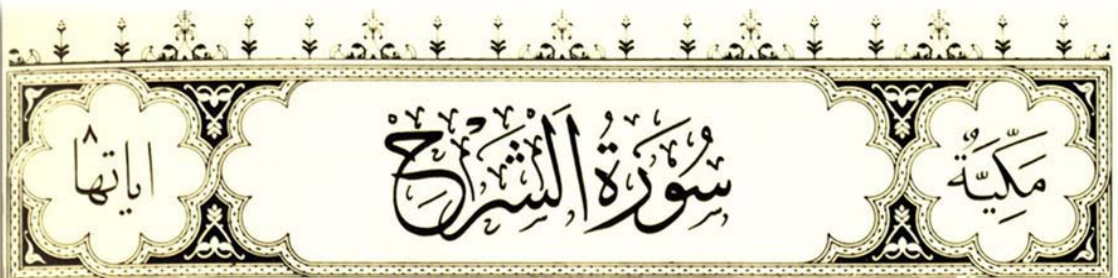 مَكِّيَّةٌ
سُورَةُ اَلشَرَاحْ
اياتها ٨